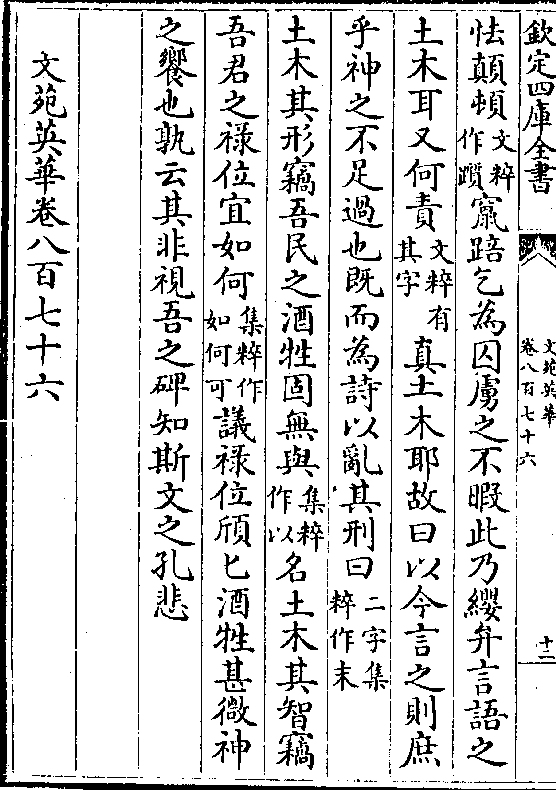 欽定四庫全書
文苑英華
卷八百七十六
十二
怯顛頓文粹作躓竄踣乞為囚虜之不暇此乃纓弁言語之
土木耳又何責文粹有其字真土木耶故曰以今言之則庶
乎神之不足過也既而為詩以亂其刑曰二字集粹作末
土木其形竊吾民之酒牲固無與集粹作以名土木其智竊
吾君之祿位宜如何集粹作如何可議祿位頎匕酒牲甚微神
之饗也孰云其非視吾之碑知斯文之孔悲
文苑英華卷八百七十六